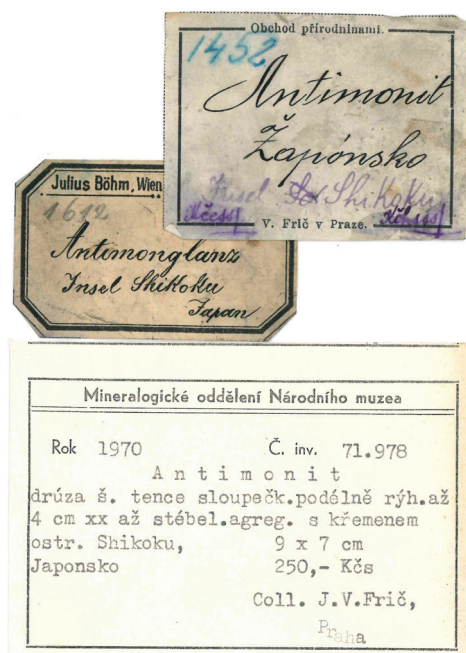 Obchod přírodninami.
1452
Antimonit
Žaponsko
Insel Shikoku
V. Frič v Praze.
Julius Böhm, Wien
1612
Antimonglanz
Insel Shikoku
Japan
Mineralogické oddělení Národního muzea
Rok 1970 Č. inv. 71.978
Antimonit
drúza š. tence sloupečk.podélně rýh.až
4 cm xx až stébel.agreg. s křemenem
ostr. Shikoku, 9 x 7 cm
Japonsko 250,- Kčs
Coll. J.V.Frič,
Praha